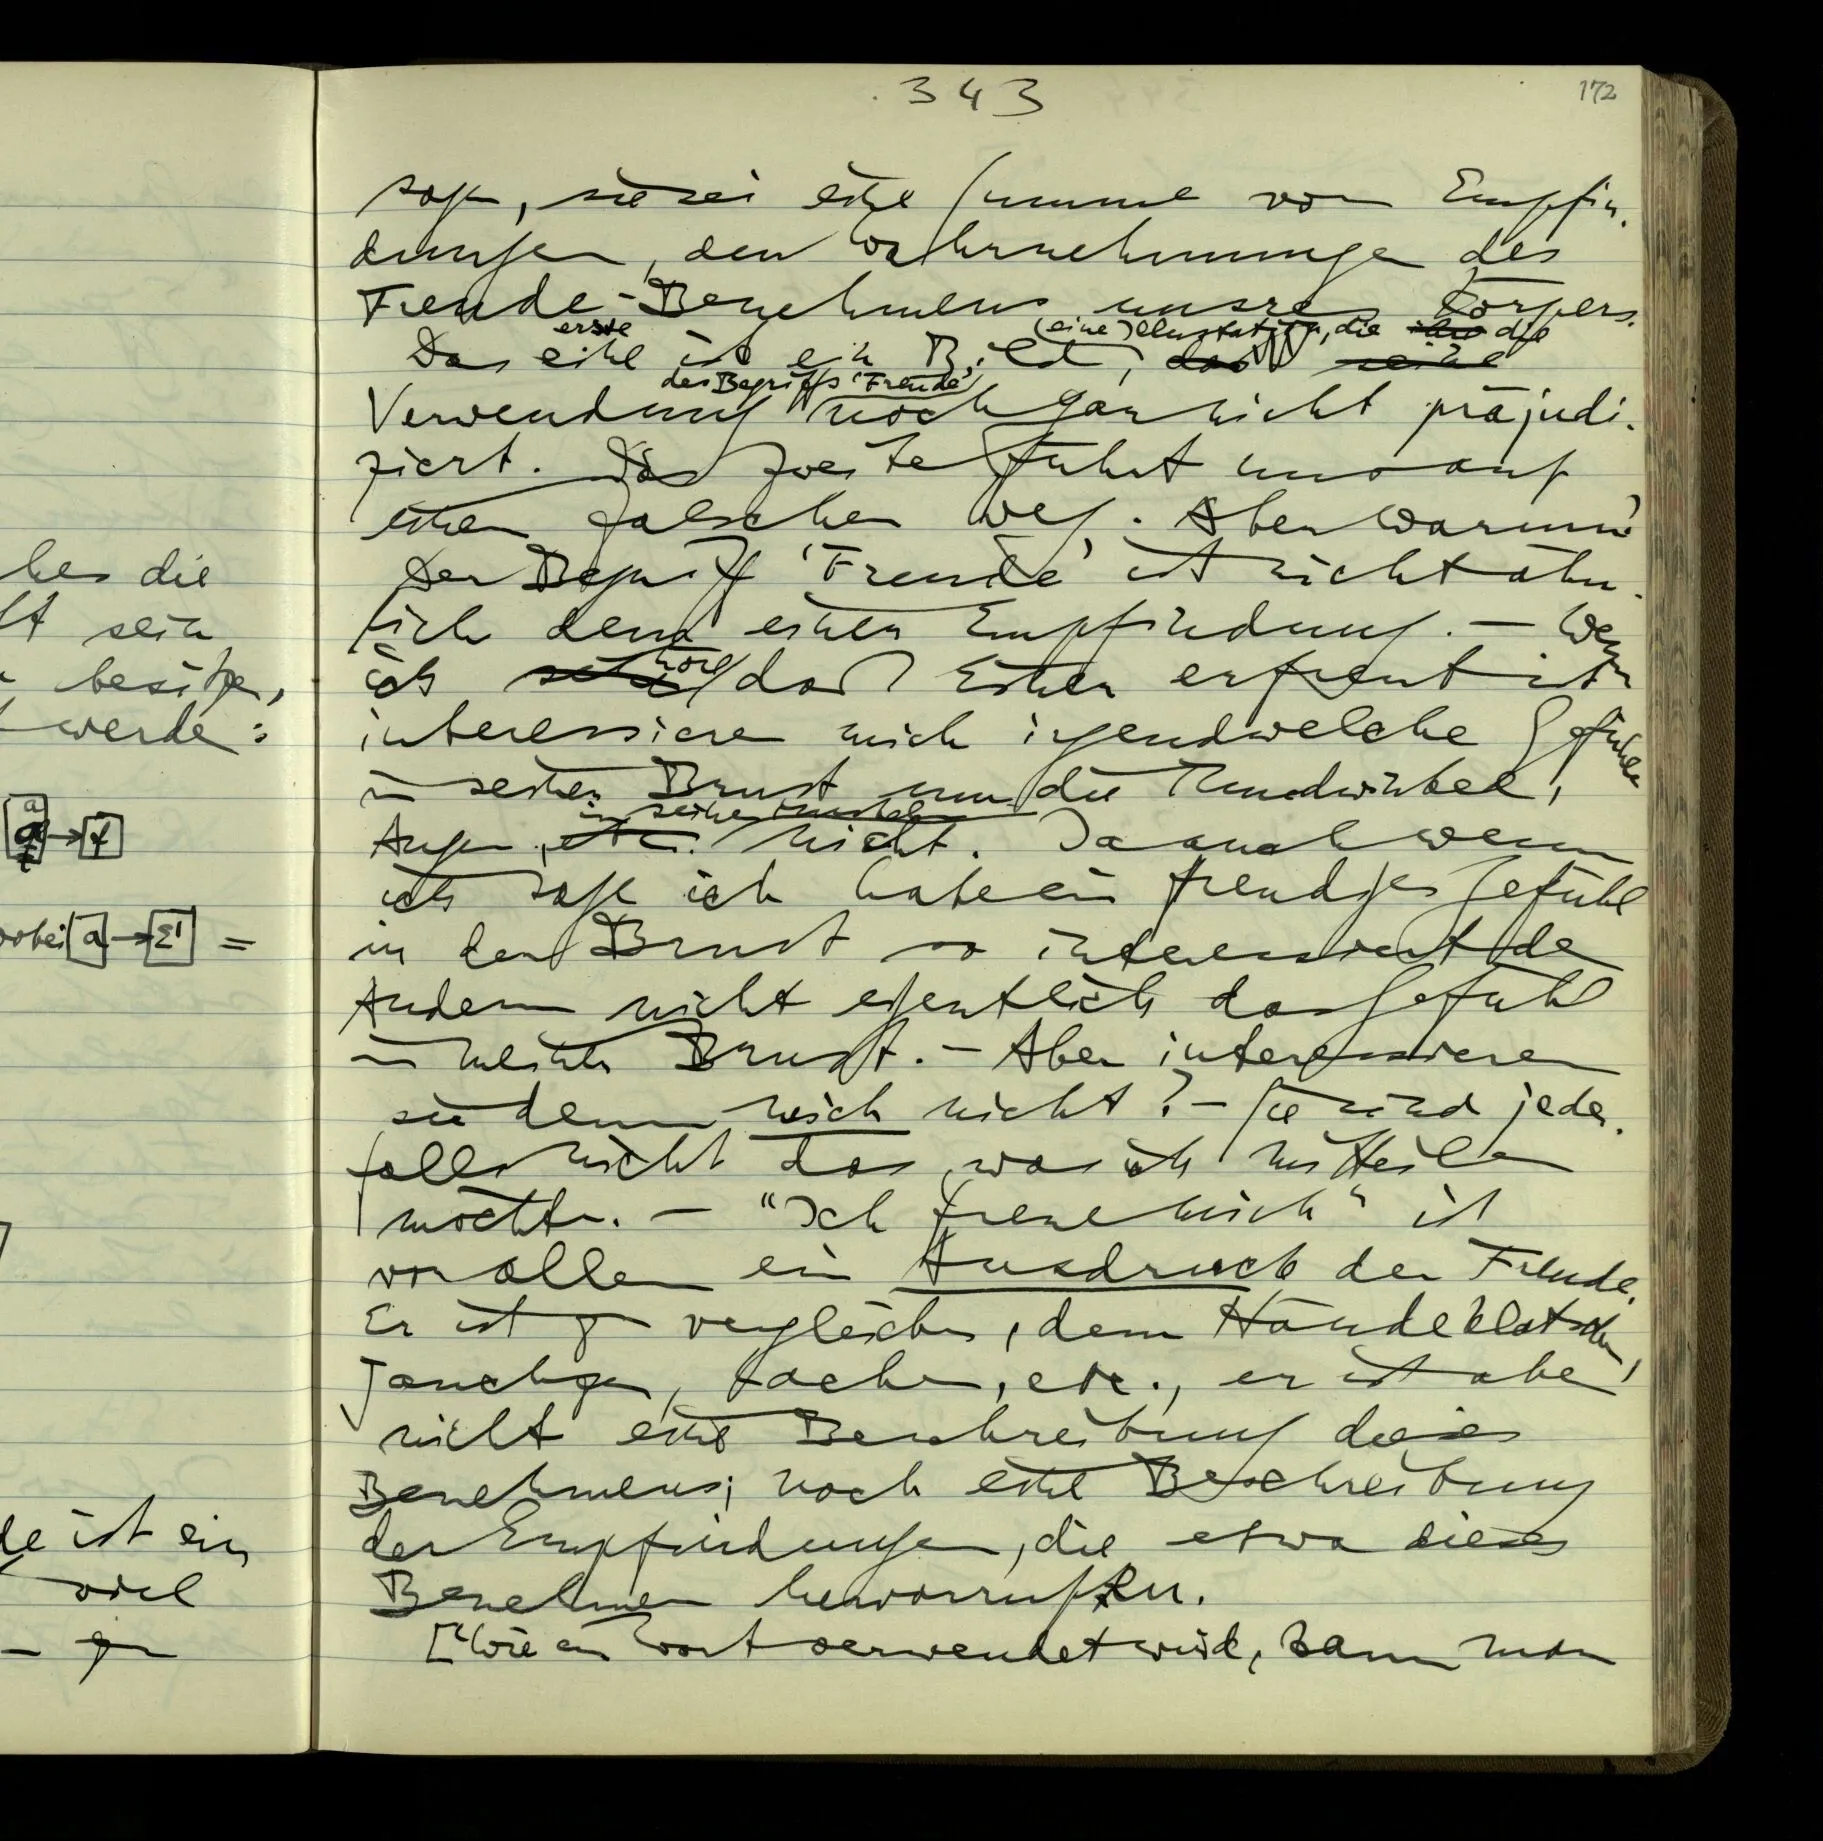 343
172
sagen, sie sei eine Summe von Empfin-
dungen, den Wahrnehmungen des
Freude-Benehmens unsres Körpers.
erste (eine Illustration, die ihre die
Das eine ist ein Bild, das seine
des Begriffs 'Freude'
Verwendung noch gar nicht präjudi-
ziert. Das zweite führt uns auf
einen falschen Weg. Aber warum?
Der Begriff 'Freude' ist nicht ähn-
lich dem einer Empfindung. – Wenn
höre
ich daß Einer erfreut ist
interessieren mich irgendwelche Gefühle
in seiner Brust um die Mundwinkel,
in seinen Muskeln
Augen, etc. nicht. Ja auch wenn
ich sage ich habe ein freudiges Gefühl
in der Brust so interessiert den
Andern nicht eigentlich das Gefühl
in meiner Brust. – Aber interessieren
sie denn mich nicht? – Sie sind jeden-
falls nicht das, was ich mitteilen
möchte. – "Ich freue mich" ist
vor allem ein Ausdruck der Freude.
Er ist zu vergleichen, dem Händeklatschen,
Jauchzen, Lachen, etc., er ist aber
nicht eine Beschreibung dieses
Benehmens; noch eine Beschreibung
der Empfindungen, die etwa dieses
Benehmen hervorrufen.
["Wie ein Wort verwendet wird, kann man
die
sein
besitzen,
werde:
a
a → t
wobei a → Σ' =
ist ein
viel